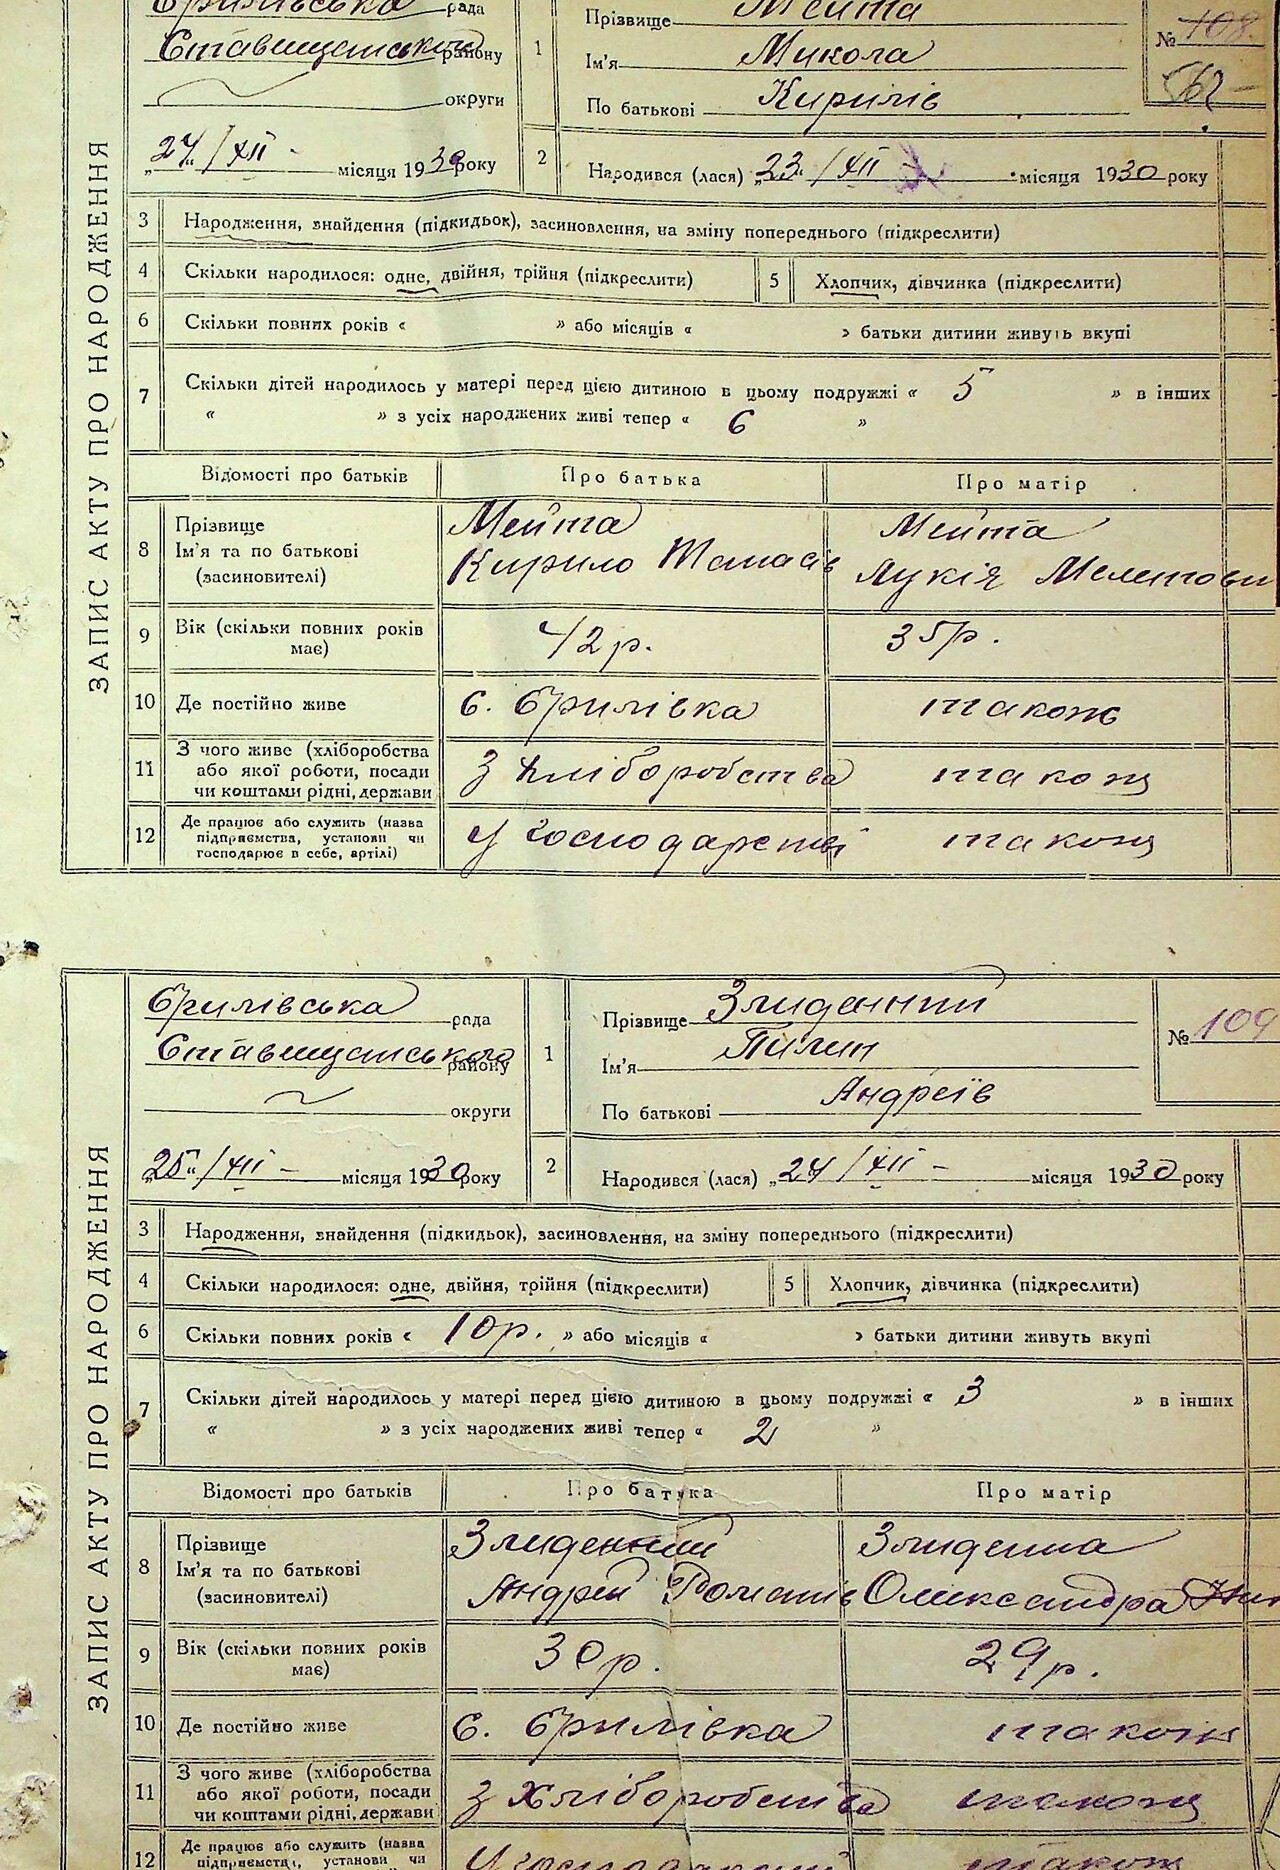 ЗАПИС АКТУ ПРО НАРОДЖЕННЯ
рада
Ставищенського району
округи
„27“/XII - місяця 1930 року
1 Прізвище Мейта
Ім'я Микола
По батькові Кирилів
№ 108
562
2 Народився (лася) „23“/XII місяця 1930 року
3 Народження, знайдення (підкидьок), засиновлення, на зміну попереднього (підкреслити)
4 Скільки народилося: одне, двійня, трійня (підкреслити)
5 Хлопчик, дівчинка (підкреслити)
6 Скільки повних років « » або місяців « » батьки дитини живуть вкупі
7 Скільки дітей народилось у матері перед цією дитиною в цьому подружжі « 5 » в інших
« » з усіх народжених живі тепер « 6 »
Відомості про батьків Про батька Про матір
8 Прізвище Мейта Мейта
Ім'я та по батькові Кирило Лукія
(засиновителі)
9 Вік (скільки повних років має) 42 р. 35 р.
10 Де постійно живе с. Брилівка також
11 З чого живе (хліборобства або якої роботи, посади чи коштами рідні, держави З хліборобства також
12 Де працює або служить (назва підприємства, установи чи господарює в себе, артілі) У господарстві також
ЗАПИС АКТУ ПРО НАРОДЖЕННЯ
Брилівська рада
Ставищенського району
округи
„25“/XII - місяця 1930 року
1 Прізвище Злиденний
Ім'я Пилип
По батькові Андреїв
№ 109
2 Народився (лася) „24/XII - місяця 1930 року
3 Народження, знайдення (підкидьок), засиновлення, на зміну попереднього (підкреслити)
4 Скільки народилося: одне, двійня, трійня (підкреслити)
5 Хлопчик, дівчинка (підкреслити)
6 Скільки повних років « 10 р. » або місяців « » батьки дитини живуть вкупі
7 Скільки дітей народилось у матері перед цією дитиною в цьому подружжі « 3 » в інших
« » з усіх народжених живі тепер « 2 »
Відомості про батьків Про батька Про матір
8 Прізвище Злиденний Злиденна
Ім'я та по батькові Андрей Романів Олександра
(засиновителі)
9 Вік (скільки повних років має) 30 р. 29 р.
10 Де постійно живе с. Брилівка також
11 З чого живе (хліборобства або якої роботи, посади чи коштами рідні, держави З Хліборобства також
12 Де працює або служить (назва підприємства, установи чи У господарстві також